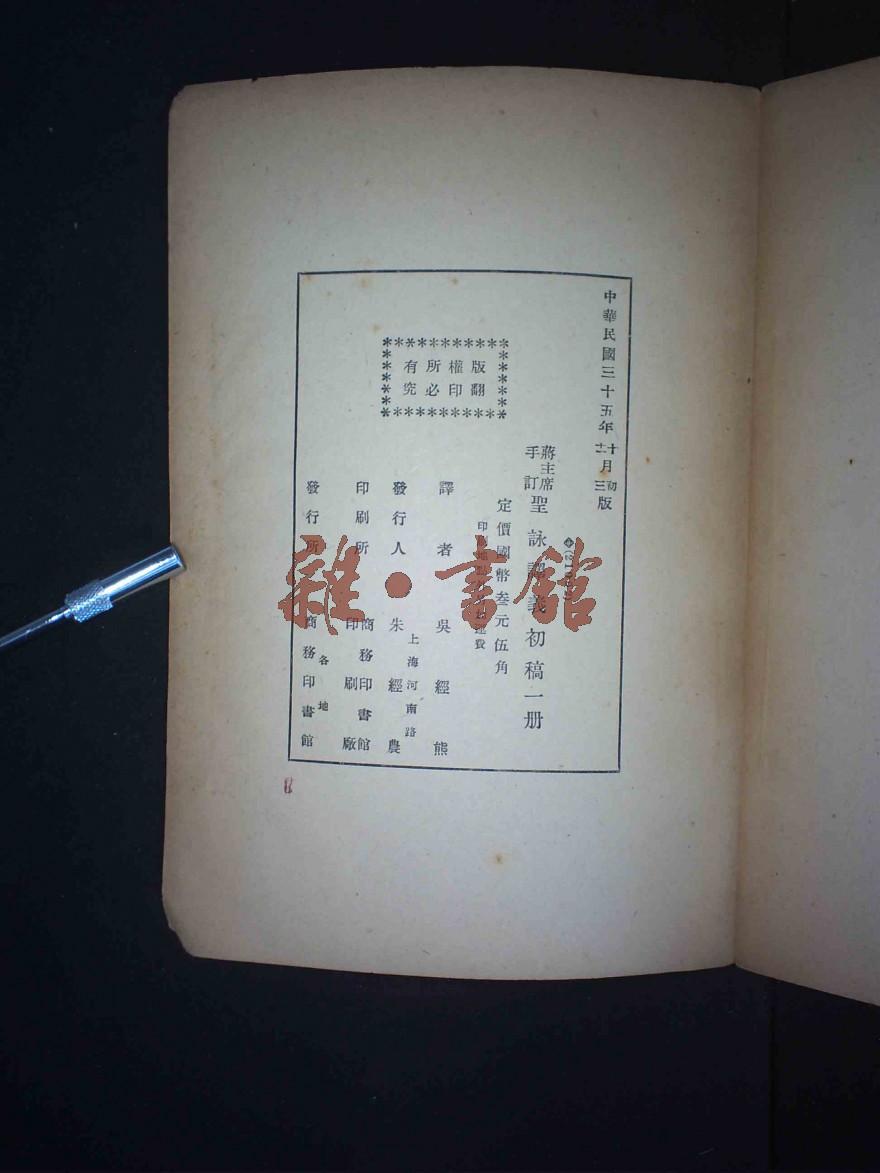 中華民國三十五年十月初版
十二月三版
蔣主席
手訂
聖詠譯義初稿一册
定價國幣叁元伍角
印刷地點外另加運費
版權所有
翻印必究
譯者 吳經熊
上海河南路
發行人 朱經農
印刷所 商務印書館
印刷廠
發行所 商務印書館
各地
雜·書館